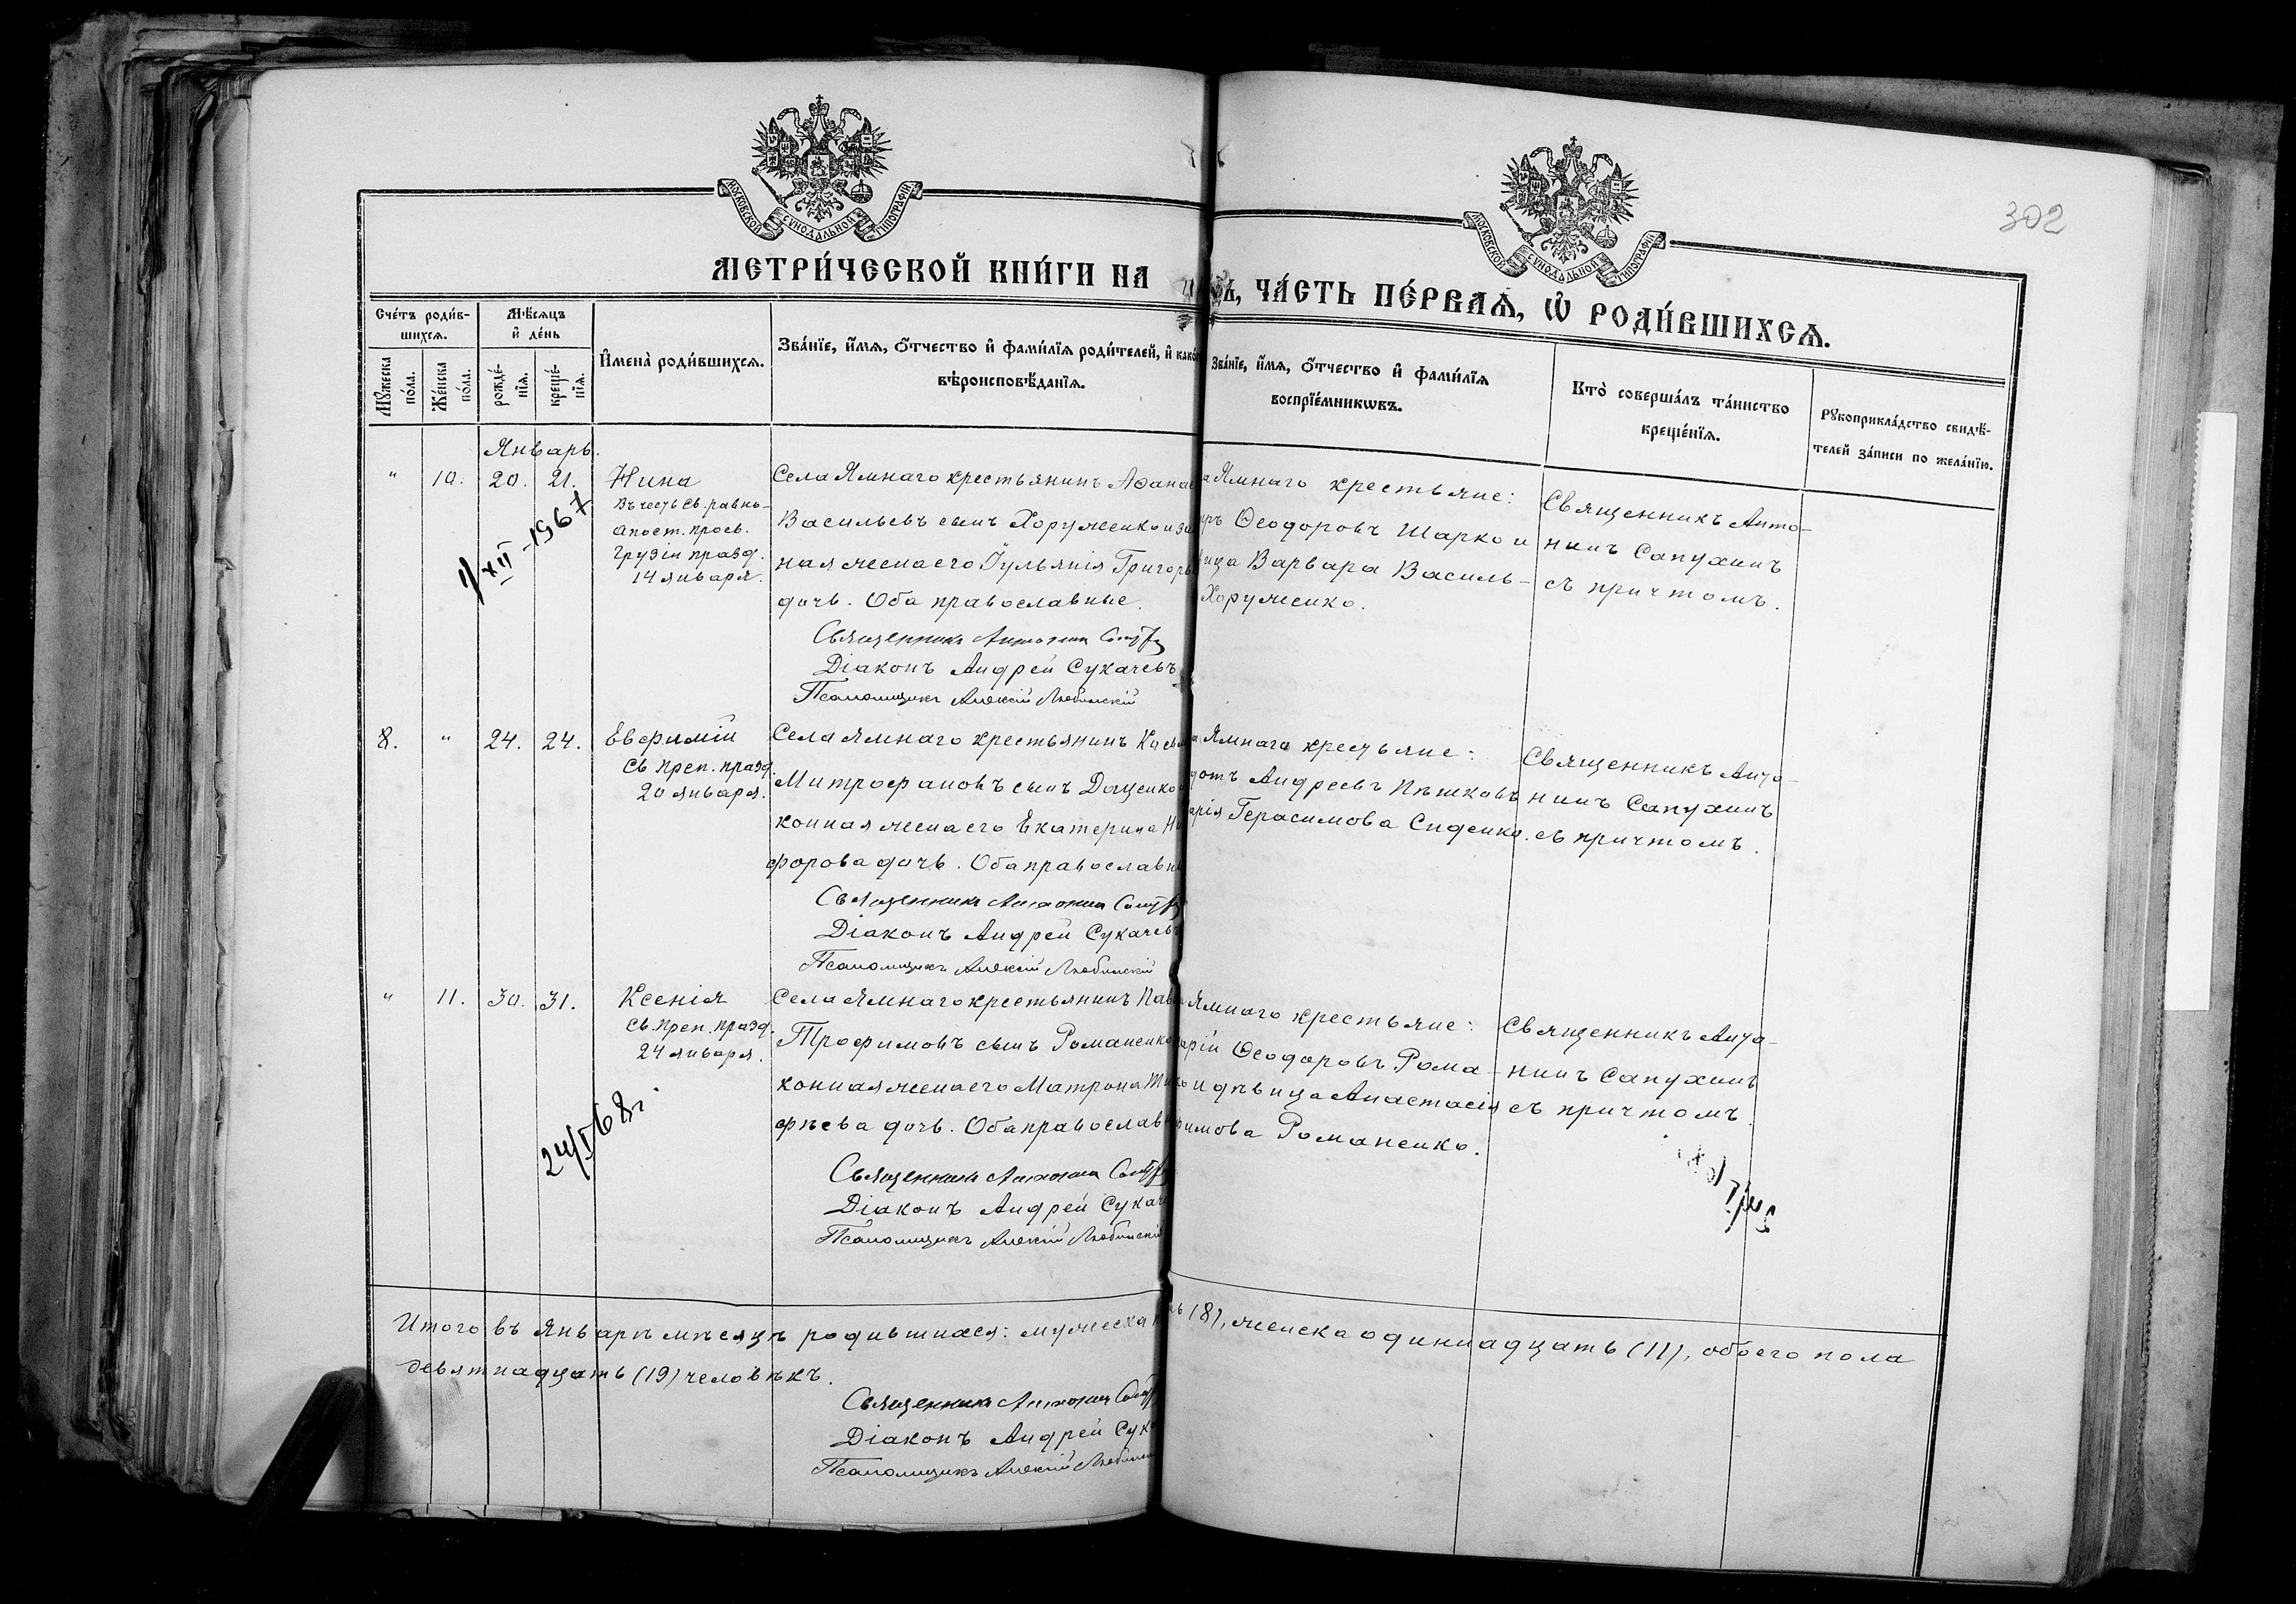 302
МОСКОВСКОЙ СѴНОДАЛЬНОЙ ТИПОГРАФІИ
МОСКОВСКОЙ СѴНОДАЛЬНОЙ ТИПОГРАФІИ
МЕТРИ́ЧЕСКОЙ КНИ́ГИ НА
ЧА́СТЬ ПЕ́РВАѦ, Ѡ҆ РОДИ́ВШИХСѦ.
Сче́тъ роди́в-
шихсѧ.
Мꙋ́жеска
по́ла.
Же́нска
по́ла.
Мѣ́сѧцъ
и҆ де́нь
рожде́-
нїѧ.
креще́-
нїѧ.
И҆мена̀ роди́вшихсѧ.
Зва́нїе, и҆́мѧ, ѻ҆́тчество и҆ фами́лїѧ роди́телей, и҆
вѣроисповѣ́данїѧ.
Зва́нїе, и҆́мѧ, ѻ҆́тчество и҆ фами́лїѧ
воспрїе́мникѡвъ.
Кто̀ соверша́лъ та́инство
креще́нїѧ.
Рꙋкоприкла́дство свидѣ́-
телей за́писи по жела́нїю.
Январь.
" 10. 20. 21.
Нина
Въ честь св. равно-
апост. просв.
Грузіи празд.
14 января.
1/XII-1967
Села Ямнаго крестьянинъ Аѳанас
Васильевъ сынъ Хоруженко и за
ная жена его Іульянія Григорь
дочь. Оба православные.
Священникъ Антонин
Діаконъ Андрей Сукачевъ
Псаломщикъ Алексій Любинскій
Ямнаго крестьяне:
Ѳеодоровъ Шарко и
Варвара Василь-
Хоруженко.
Священникъ Анто-
нинъ Сапухинъ
съ причтомъ.
8. " 24. 24.
Евфимій
Св. преп. празд.
20 января.
Села Ямнаго крестьянинъ Косьм
Митрофановъ сынъ Доценко
конная жена его Екатерина Ни
форова дочь. Оба православн
Священникъ Антонин
Діаконъ Андрей Сукачевъ
Псаломщикъ Алексій Любинскій
Ямнаго крестьяне:
Андреевъ Пѣшковъ
Герасимова Сиденко.
Священникъ Анто-
нинъ Сапухинъ
съ причтомъ.
" 11. 30. 31.
Ксенія
Св. преп. празд.
24 января.
24/I 68г.
Села Ямнаго крестьянинъ Пав
Трофимовъ сынъ Романенко
конная жена его Матрона Тимо
фѣева дочь. Оба православн
Священникъ Антонин
Діаконъ Андрей Сукаче
Псаломщикъ Алексій Любинскій
Ямнаго крестьяне:
Ѳеодоровъ Рома-
и дѣвица Анастасія
Романенко.
Священникъ Анто-
нинъ Сапухинъ
съ причтомъ.
Итого въ январѣ мѣсяцѣ родившихся: мужеска (8), женска одиннадцать (11), обоего пола
девятнадцать (19) человѣкъ.
Священникъ Антонин
Діаконъ Андрей Сук
Псаломщикъ Алексій Любинск